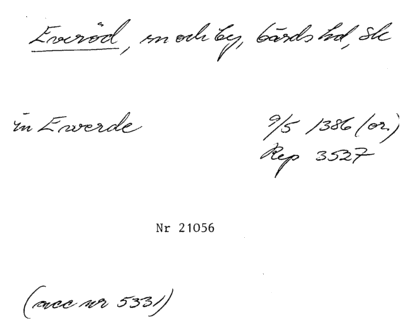 Everöd, sn och by, Gärds hd, Sk
in Ewerde 9/5 1386 (or.)
Rep 3527
Nr 21056
(acc nr 5331)